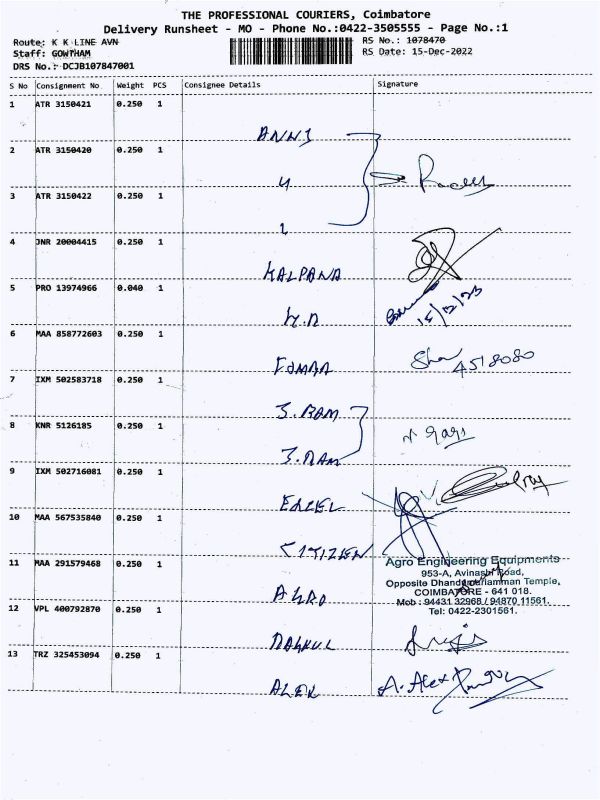 THE PROFESSIONAL COURIERS, Coimbatore
Delivery Runsheet - MO - Phone No.:0422-3505555 - Page No.:1
Route: K K LINE AVN
Staff: GOWTHAM
DRS No.: DCJB107847001
RS No.: 1078470
RS Date: 15-Dec-2022
S No Consignment No Weight PCS Consignee Details Signature
1 ATR 3150421 0.250 1
2 ATR 3150420 0.250 1
3 ATR 3150422 0.250 1
4 JNR 20004415 0.250 1
KALPANA
5 PRO 13974966 0.040 1
6 MAA 858772603 0.250 1
4518080
7 IXM 502583718 0.250 1
S. RAM
8 KNR 5126185 0.250 1
S. RAM
9 IXM 502716081 0.250 1
EXCEL
10 MAA 567535840 0.250 1
CITIZEN
Agro Engineering Equipments
953-A, Avinashi Road,
Opposite Dhandumariamman Temple,
COIMBATORE - 641 018.
Mob : 94431 32968 / 94870 11561.
Tel: 0422-2301561.
11 MAA 291579468 0.250 1
AGRO
12 VPL 400792870 0.250 1
13 TRZ 325453094 0.250 1
ALEX A. Alex